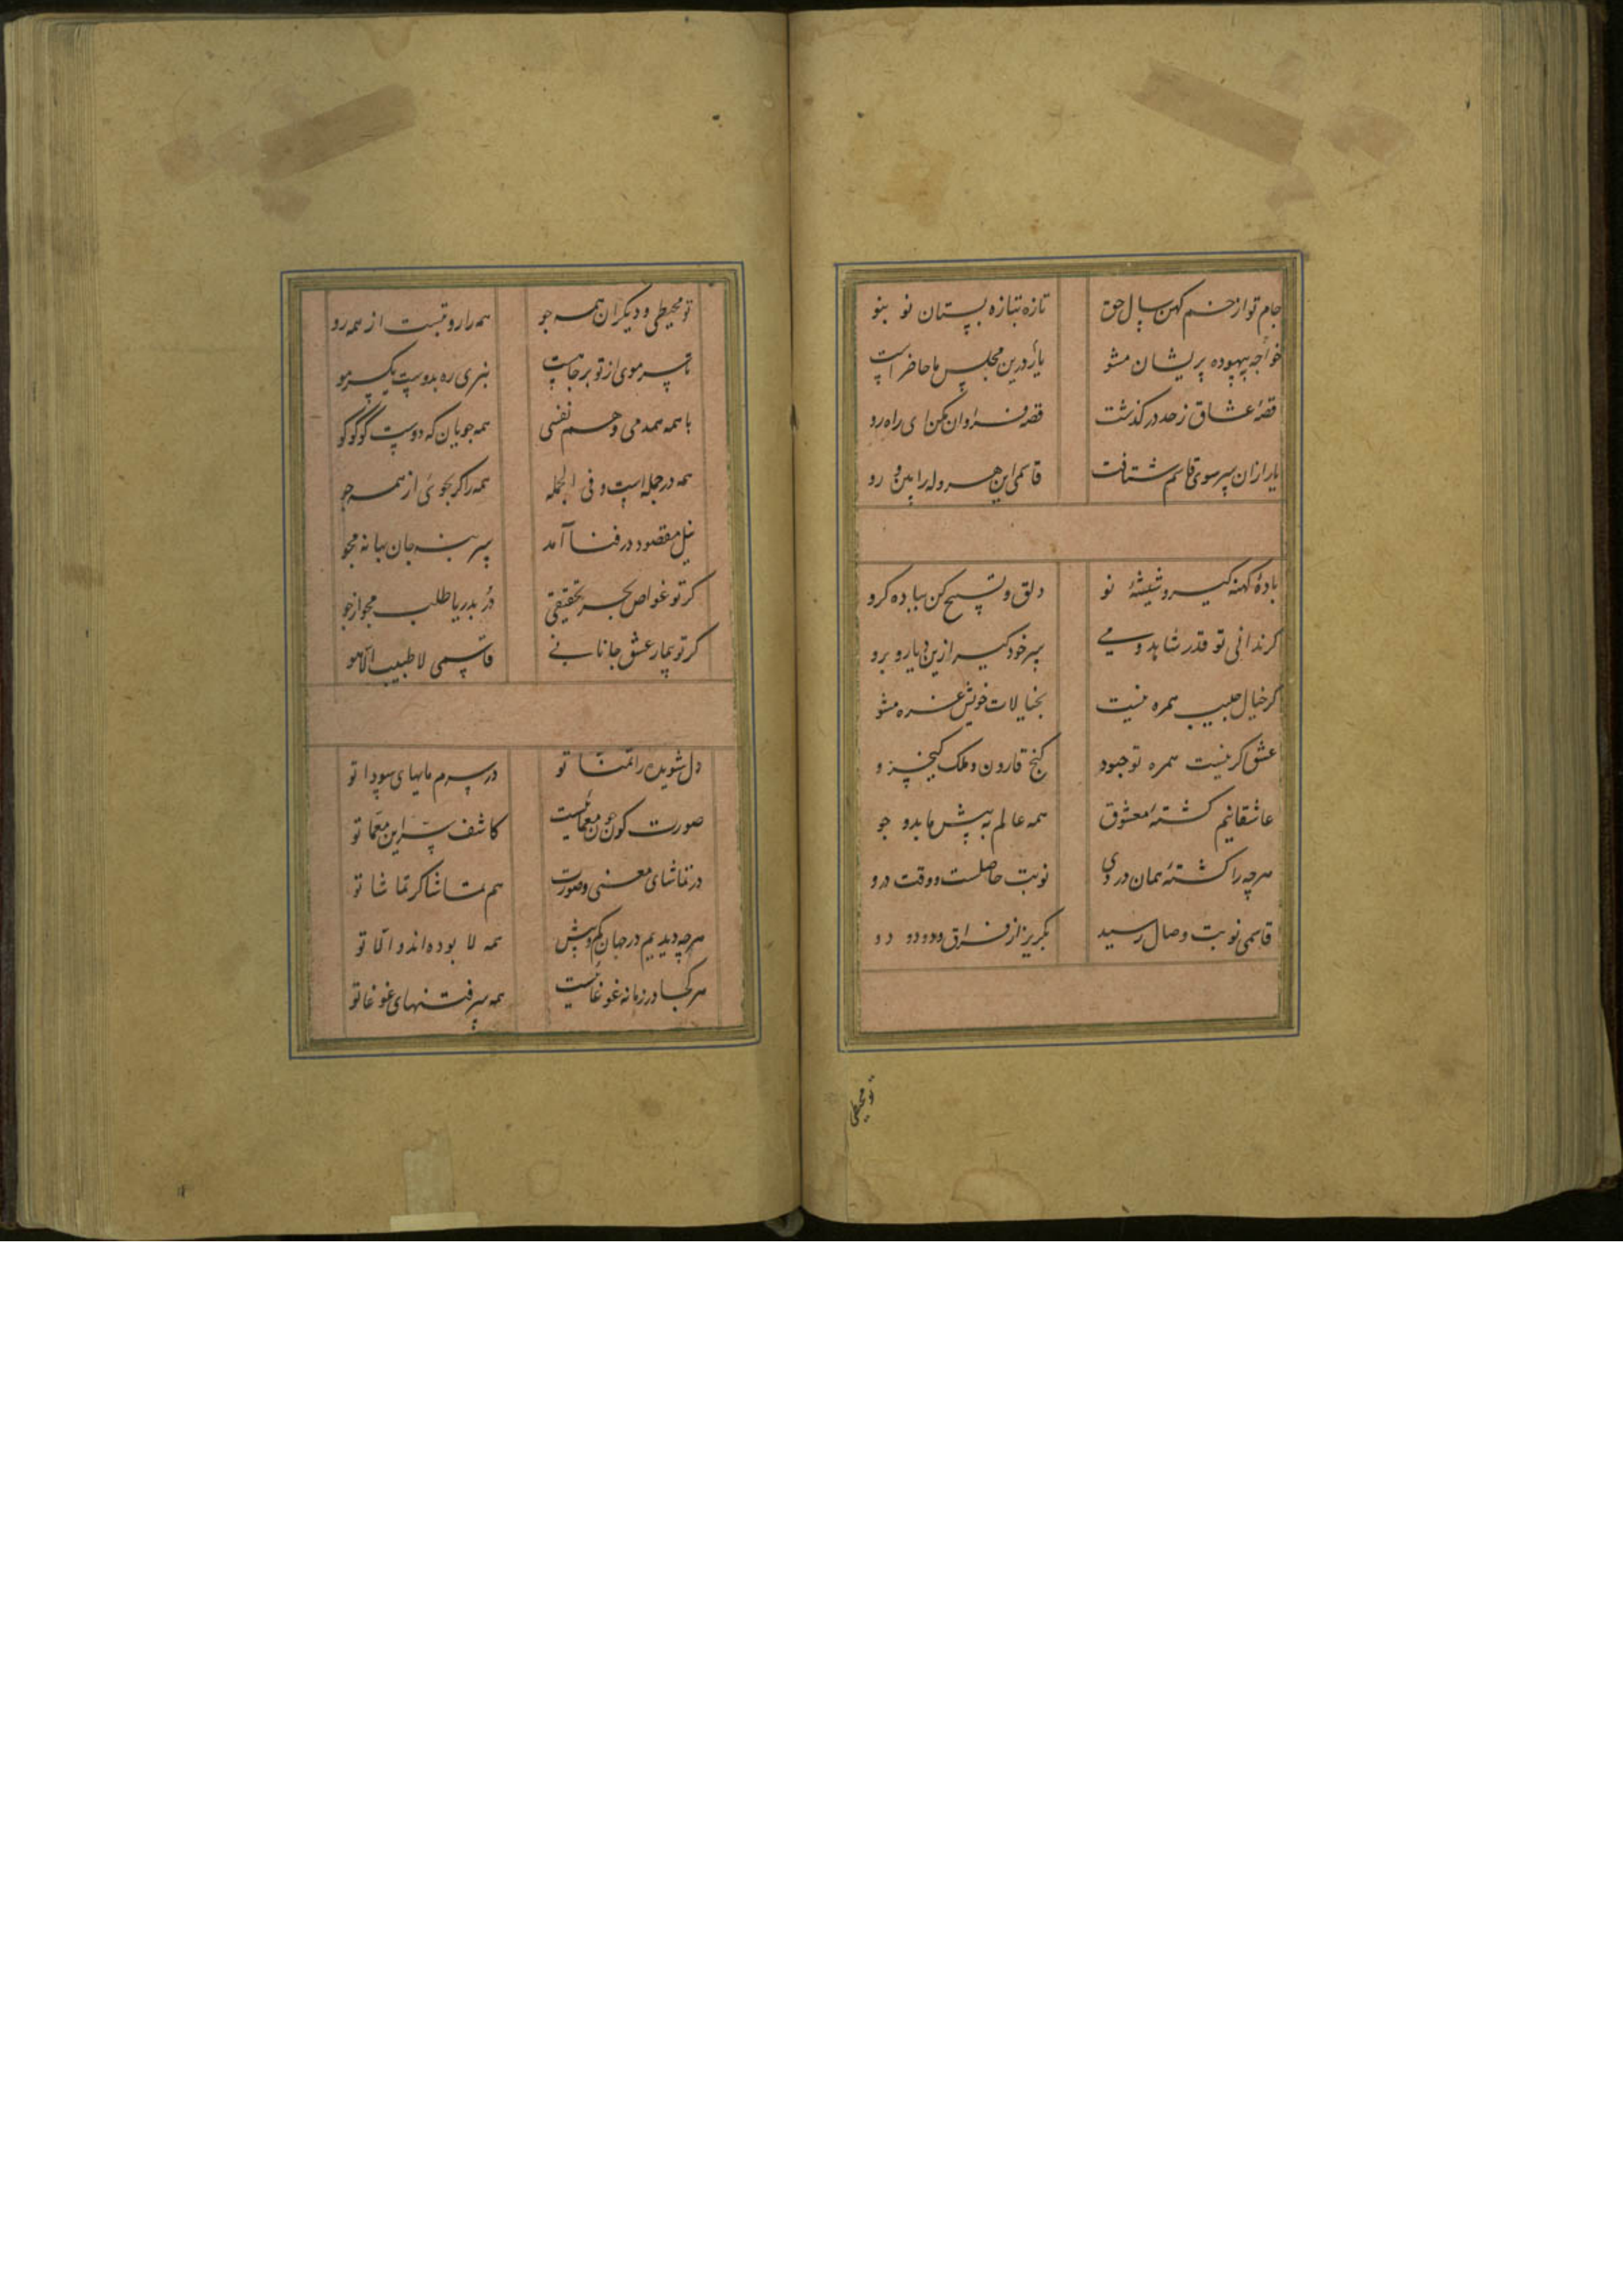 جام تو از خم کهن سال حق تازه بتازه بستان نو بنو
خواجه بیهوده پریشان مشو یار درین مجلس ما حاضر است
قصهٔ عشاق ز حد در گذشت قصه فراوان مکن ای راه رو
یار ازان سر سوی قاسم شتافت قاسمی این هروله را بین و رو
بادهٔ کهنه گیر و شیشهٔ نو دلق و تسبیح کن بباده گرو
گر ندانی تو قدر شاهد و می سر خود گیر ازین دیار و برو
گر خیال حبیب همره نیست بخیالات خویش غره مشو
عشق گر نیست همره تو چسود گنج قارون و ملک کیخسرو
عاشقانیم کشتهٔ معشوق همه عالم به پیش ما بدو جو
هرچه را کشتهٔ همان دروی نوبت حاصلست و وقت درو
قاسمی نوبت وصال رسید بگریز از فراق و دو دو دو
تو محیطی
تو محیطی و دیگران همه جو همه را رو تست از همه رو
تا سر موی از تو بر جاهست نبری ره بدوست یکسر مو
با همه همدمی و هم نفسی همه جویان که دوست گو گو گو
همه در جمله است و فی الجمله همه را گر بجوئی از همه جو
نیل مقصود در فنا آمد سر بنه جان بهانه مجو
گر تو غواص بحر تحقیقی در بدریا طلب مجو از جو
گر تو بیمار عشق جانانی قاسمی لا طبیب الا هو
دل شوریده را تمنا تو در سرم مایهای سودا تو
صورت کون چون معمائیست کاشف سر این معما تو
در تماشای معنی و صورت هم تماشاگر تماشا تو
هرچه دیدیم در جهان کم و بیش همه لا بوده اند و الا تو
هر کجا در زمانه غوغائیست همه سر فتنهای غوغا تو